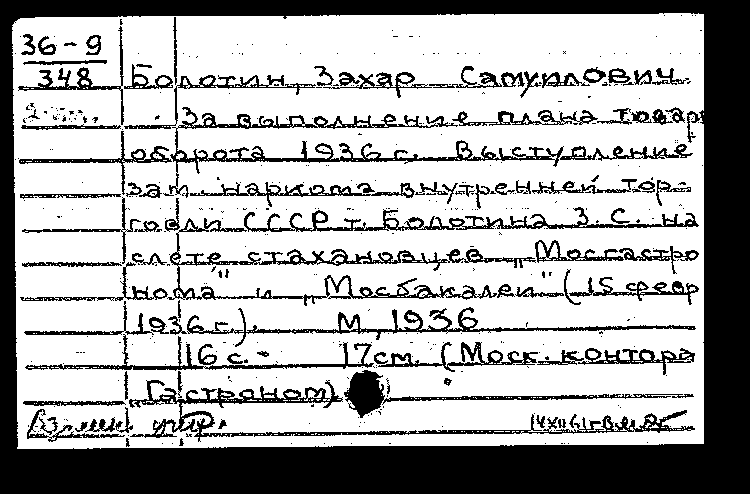 36-9
348
Болотин, Захар Самуилович.
2 экз.
За выполнение плана товаро
оборота 1936 г. Выступление
зам. наркома внутренней тор-
говли СССР т. Болотина З. С. на
слете стахановцев „Мосгастро
нома" и „Мосбакалеи" (15 февр
1936 г.). М, 1936
16 с. - 17см. (Моск. контора
„Гастроном).
Взамен